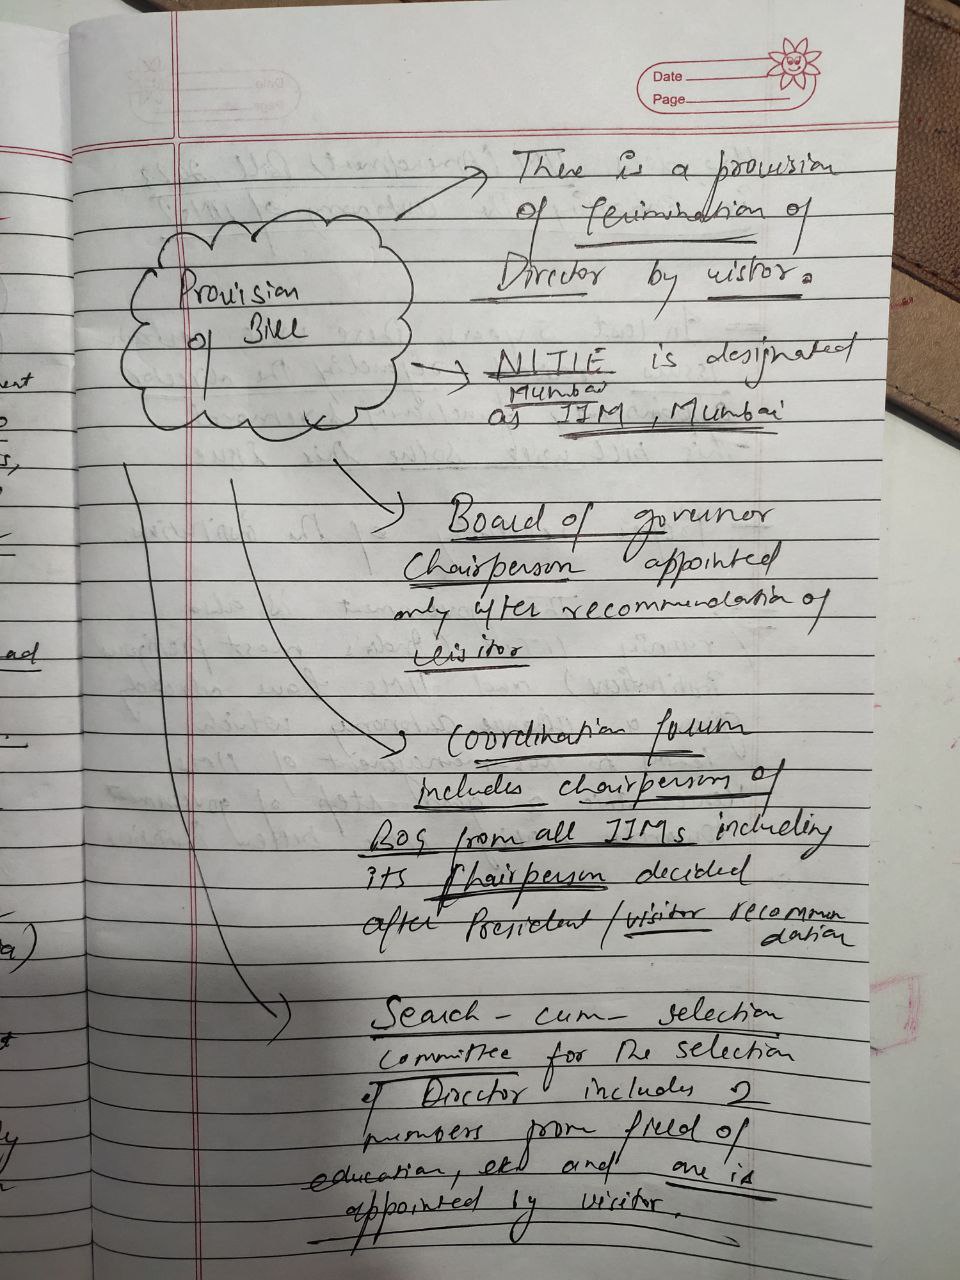 Date
Page
There is a provision
of Terimination of
Director by vistor.
Provision
of Bill
NITIE is designated
Mumbai
as IIM, Mumbai
Board of governor
Chairperson appointed
only after recommendation of
visitor
Coordination forum
includes chairperson of
BOG from all IIMs including
its Chairperson decided
after President / visitor recommen
dation
Search - cum - selection
committee for the selection
of Director includes 2
members from field of
education, etc and one is
appointed by visitor.
ent
ad
a)